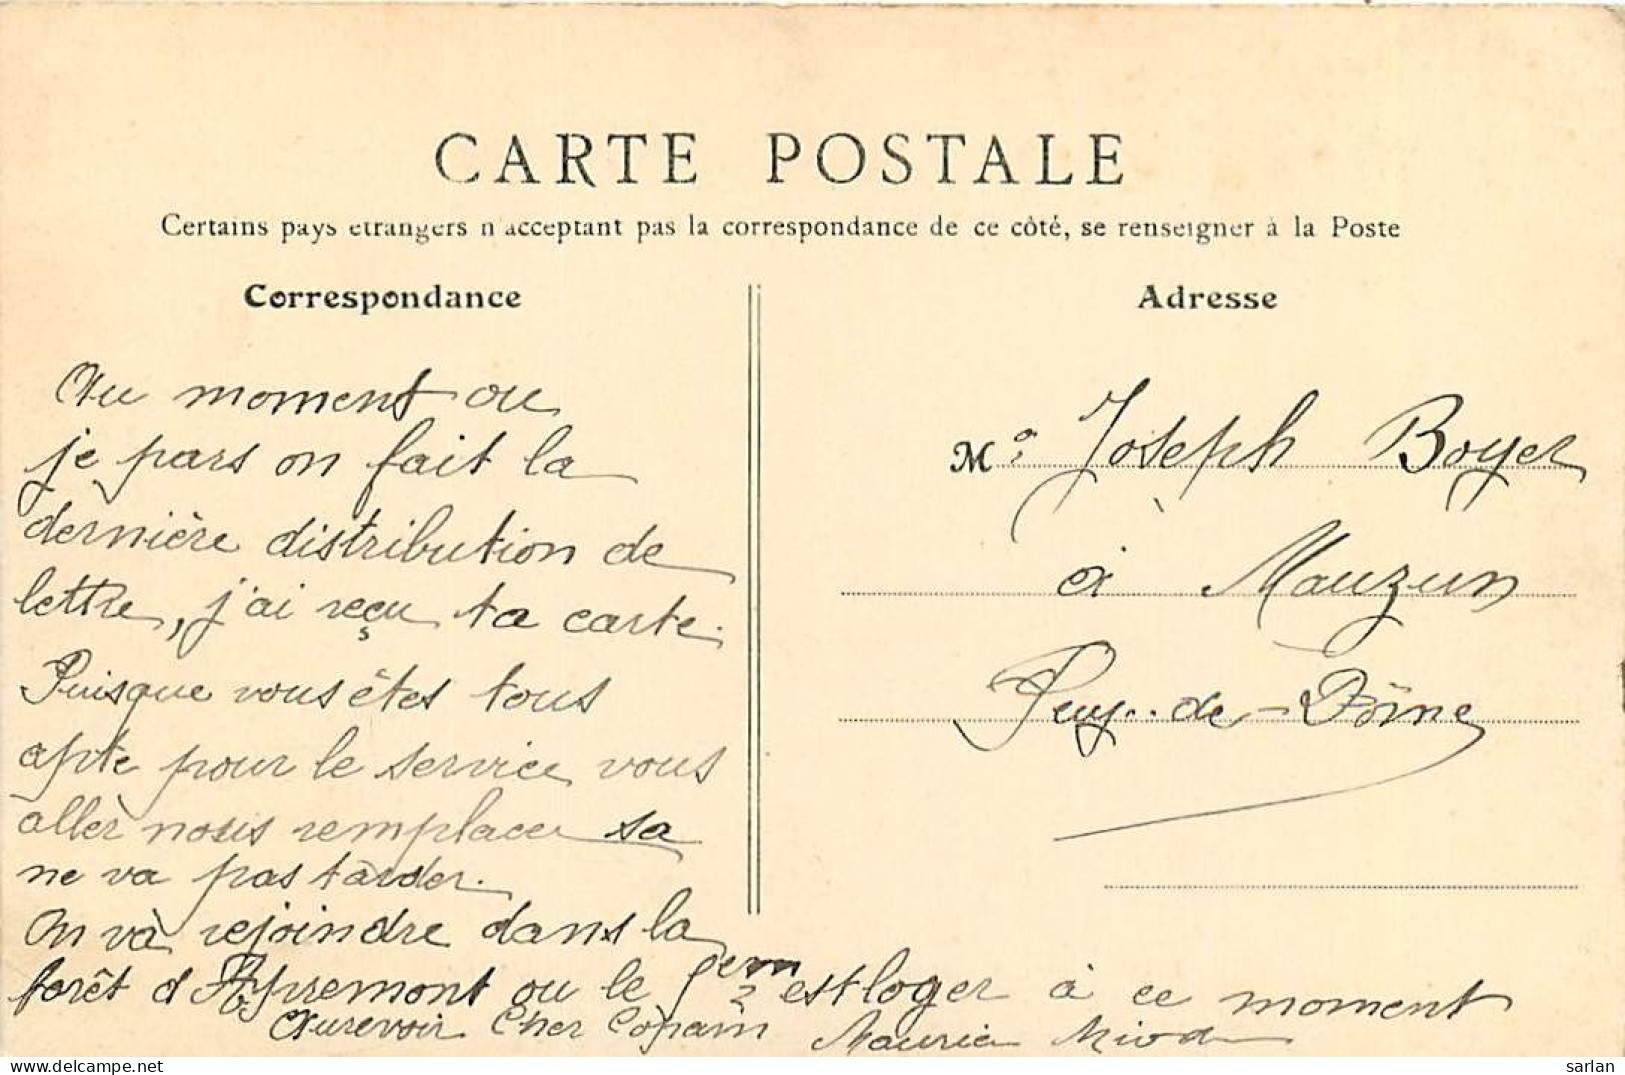 CARTE POSTALE
Certains pays etrangers n'acceptant pas la correspondance de ce côté, se renseigner à la Poste
Correspondance
Adresse
Au moment ou
je pars on fait la
dernière distribution de
lettre, j'ai reçu ta carte.
Puisque vous êtes tous
apte pour le service vous
aller nous remplacer sa
ne va pas tarder.
On và rejoindre dans la
forêt d'Apremont ou le est loger à ce moment
Aurevoir Cher Copain Maurice
Mr Joseph Boyer
à Mauzun
Puy-de-Dôme
sarlan